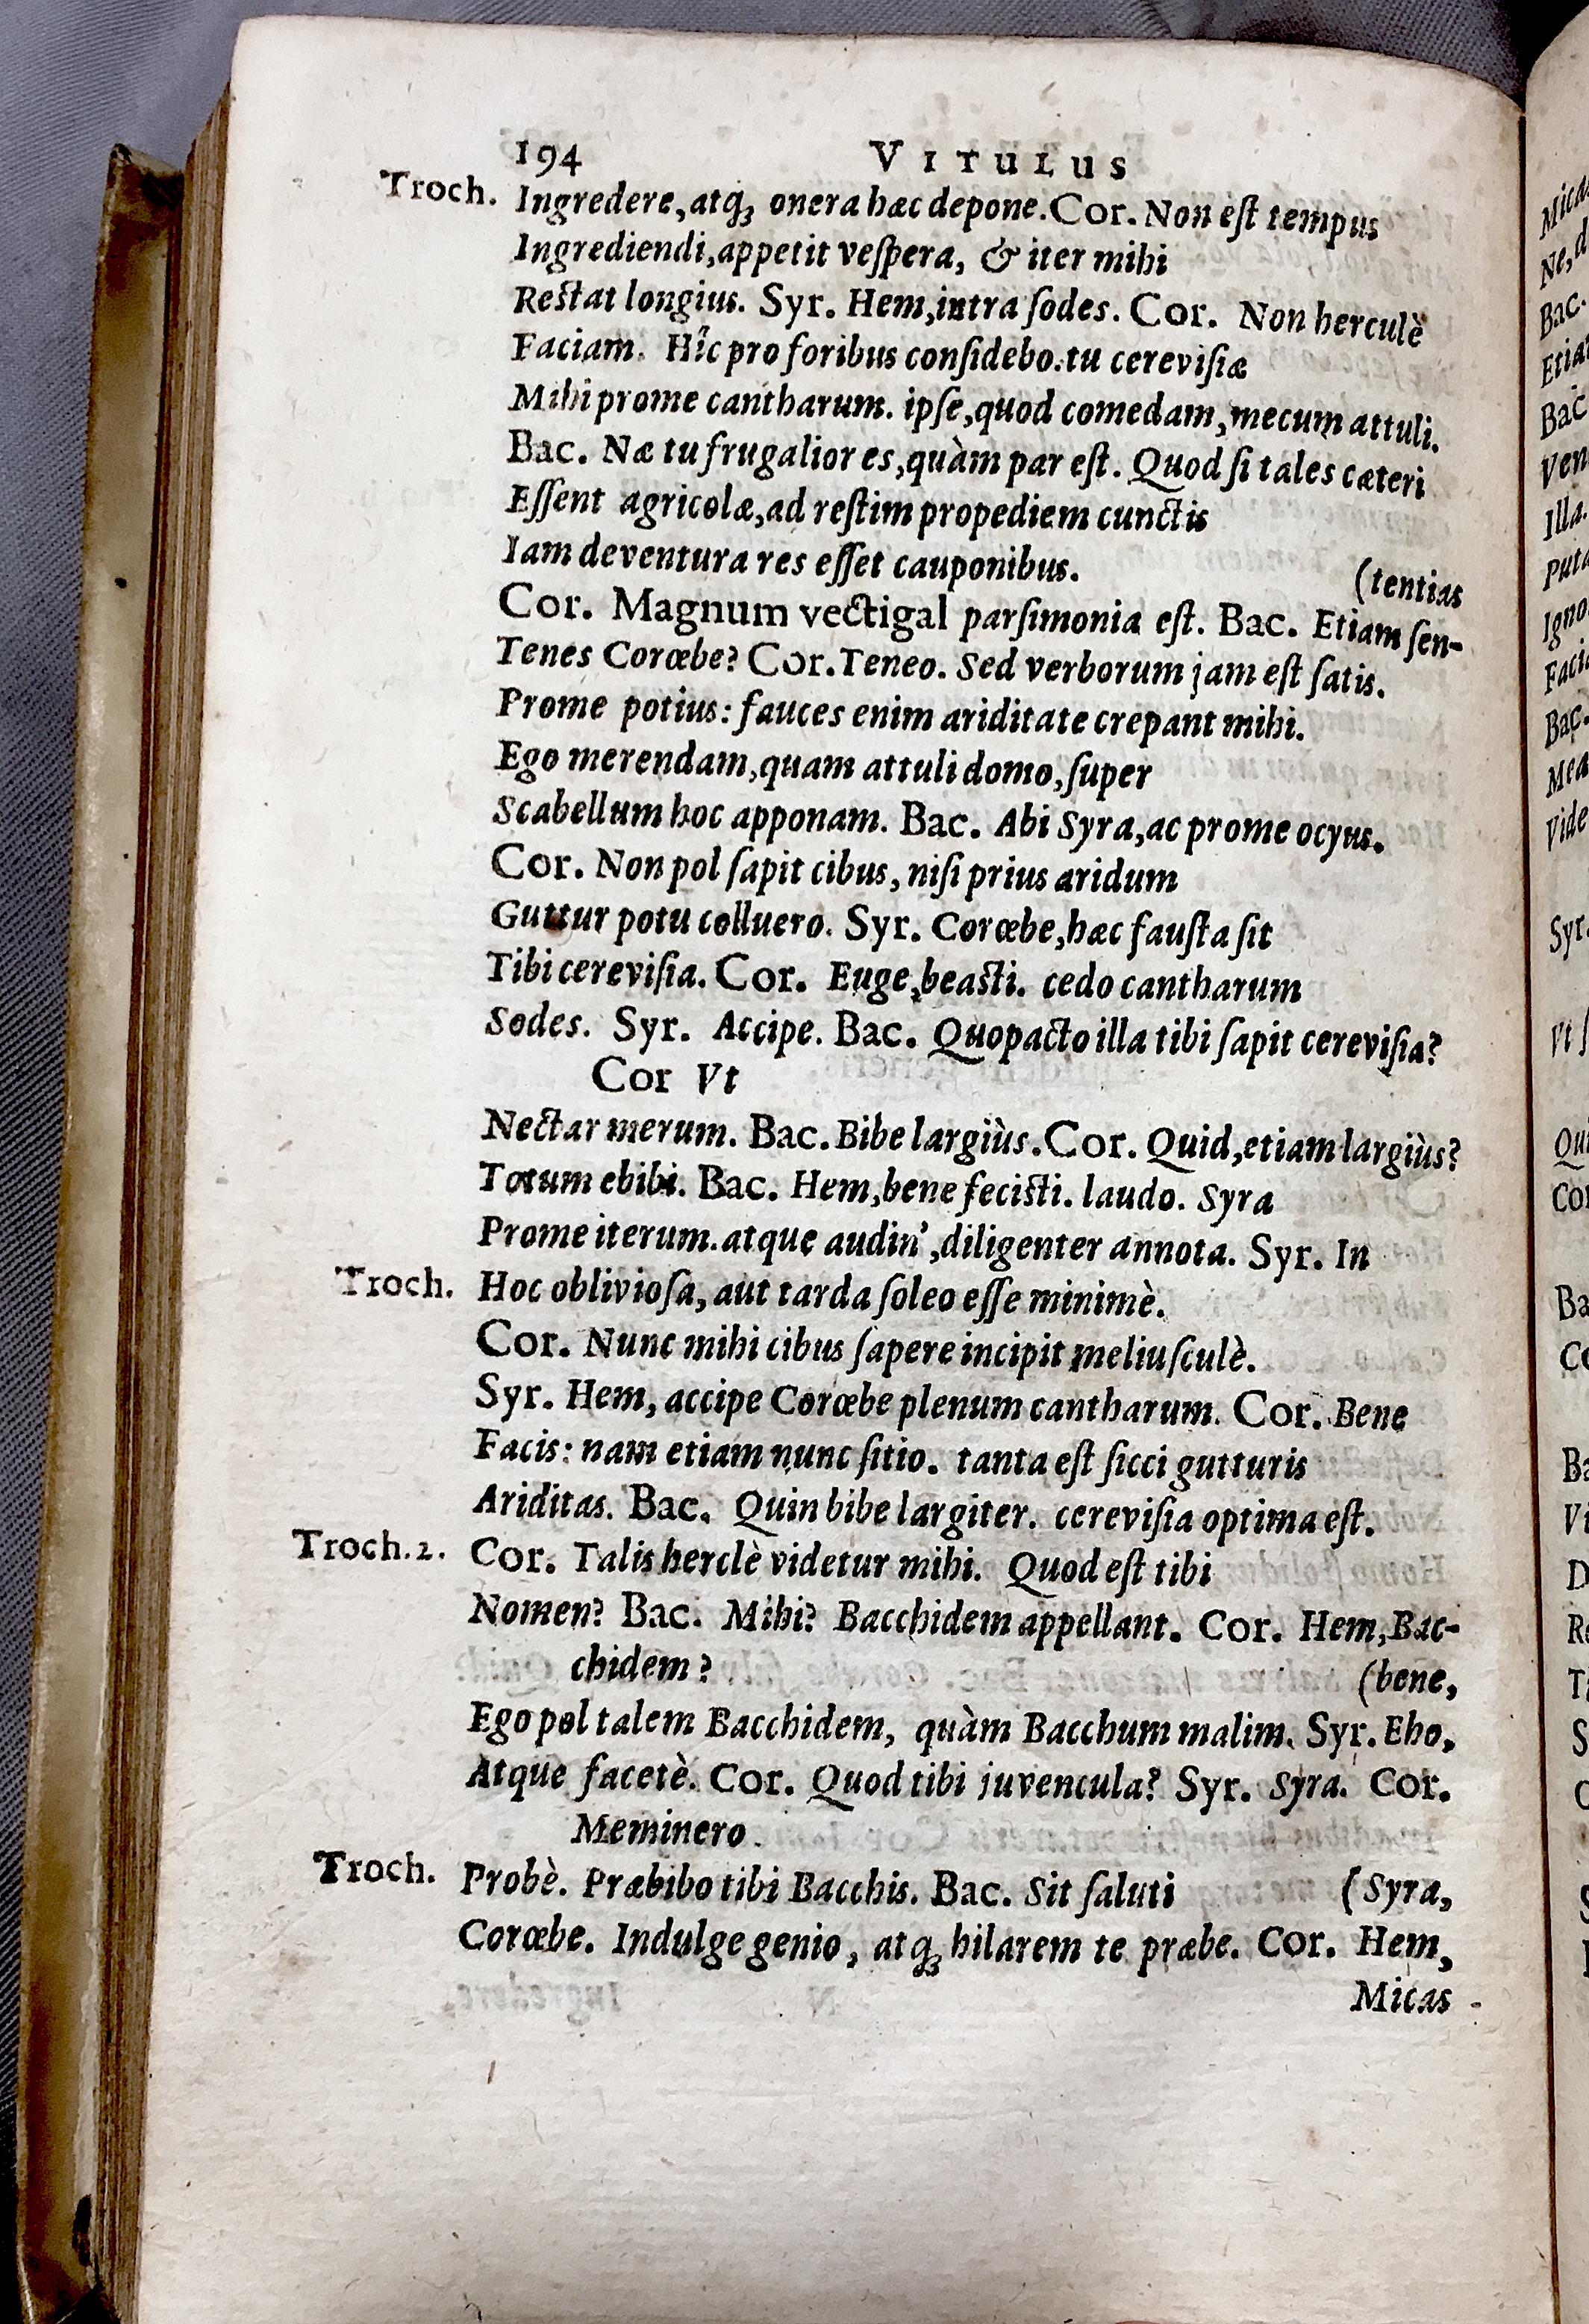 194 VITULUS
Troch. Ingredere, atq; onera hæc depone. Cor. Non eſt tempus
Ingrediendi, appetit veſpera, & iter mihi
Reſtat longius. Syr. Hem, intra ſodes. Cor. Non herculè
Faciam. Hîc pro foribus conſidebo. tu cereviſiæ
Mihi prome cantharum. ipſe, quod comedam, mecum attuli.
Bac. Næ tu frugalior es, quàm par eſt. Quod ſi tales cæteri
Eſſent agricolæ, ad reſtim propediem cunctis
Iam deventura res eſſet cauponibus. (tentias
Cor. Magnum vectigal parſimonia eſt. Bac. Etiam ſen-
Tenes Corœbe? Cor. Teneo. Sed verborum jam eſt ſatis.
Prome potius: fauces enim ariditate crepant mihi.
Ego merendam, quam attuli domo, ſuper
Scabellum hoc apponam. Bac. Abi Syra, ac prome ocyus.
Cor. Non pol ſapit cibus, niſi prius aridum
Guttur potu colluero. Syr. Corœbe, hæc fauſta ſit
Tibi cereviſia. Cor. Euge, beaſti. cedo cantharum
Sodes. Syr. Accipe. Bac. Quo pacto illa tibi ſapit cereviſia?
Cor Vt
Nectar merum. Bac. Bibe largiùs. Cor. Quid, etiam largiùs?
Totum ebibi. Bac. Hem, bene feciſti. laudo. Syra
Prome iterum. atque audin', diligenter annota. Syr. In
Troch. Hoc oblivioſa, aut tarda ſoleo eſſe minimè.
Cor. Nunc mihi cibus ſapere incipit meliuſculè.
Syr. Hem, accipe Corœbe plenum cantharum. Cor. Bene
Facis: nam etiam nunc ſitio. tanta eſt ſicci gutturis
Ariditas. Bac. Quin bibe largiter. cereviſia optima eſt.
Troch. 2. Cor. Talis herclè videtur mihi. Quod eſt tibi
Nomen? Bac. Mihi? Bacchidem appellant. Cor. Hem, Bac-
chidem? (bene,
Ego pol talem Bacchidem, quàm Bacchum malim. Syr. Eho,
Atque facetè. Cor. Quod tibi juvencula? Syr. Syra. Cor.
Meminero.
Troch. Probè. Præbibo tibi Bacchis. Bac. Sit ſaluti (Syra,
Corœbe. Indulge genio, atq; hilarem te præbe. Cor. Hem,
Micas